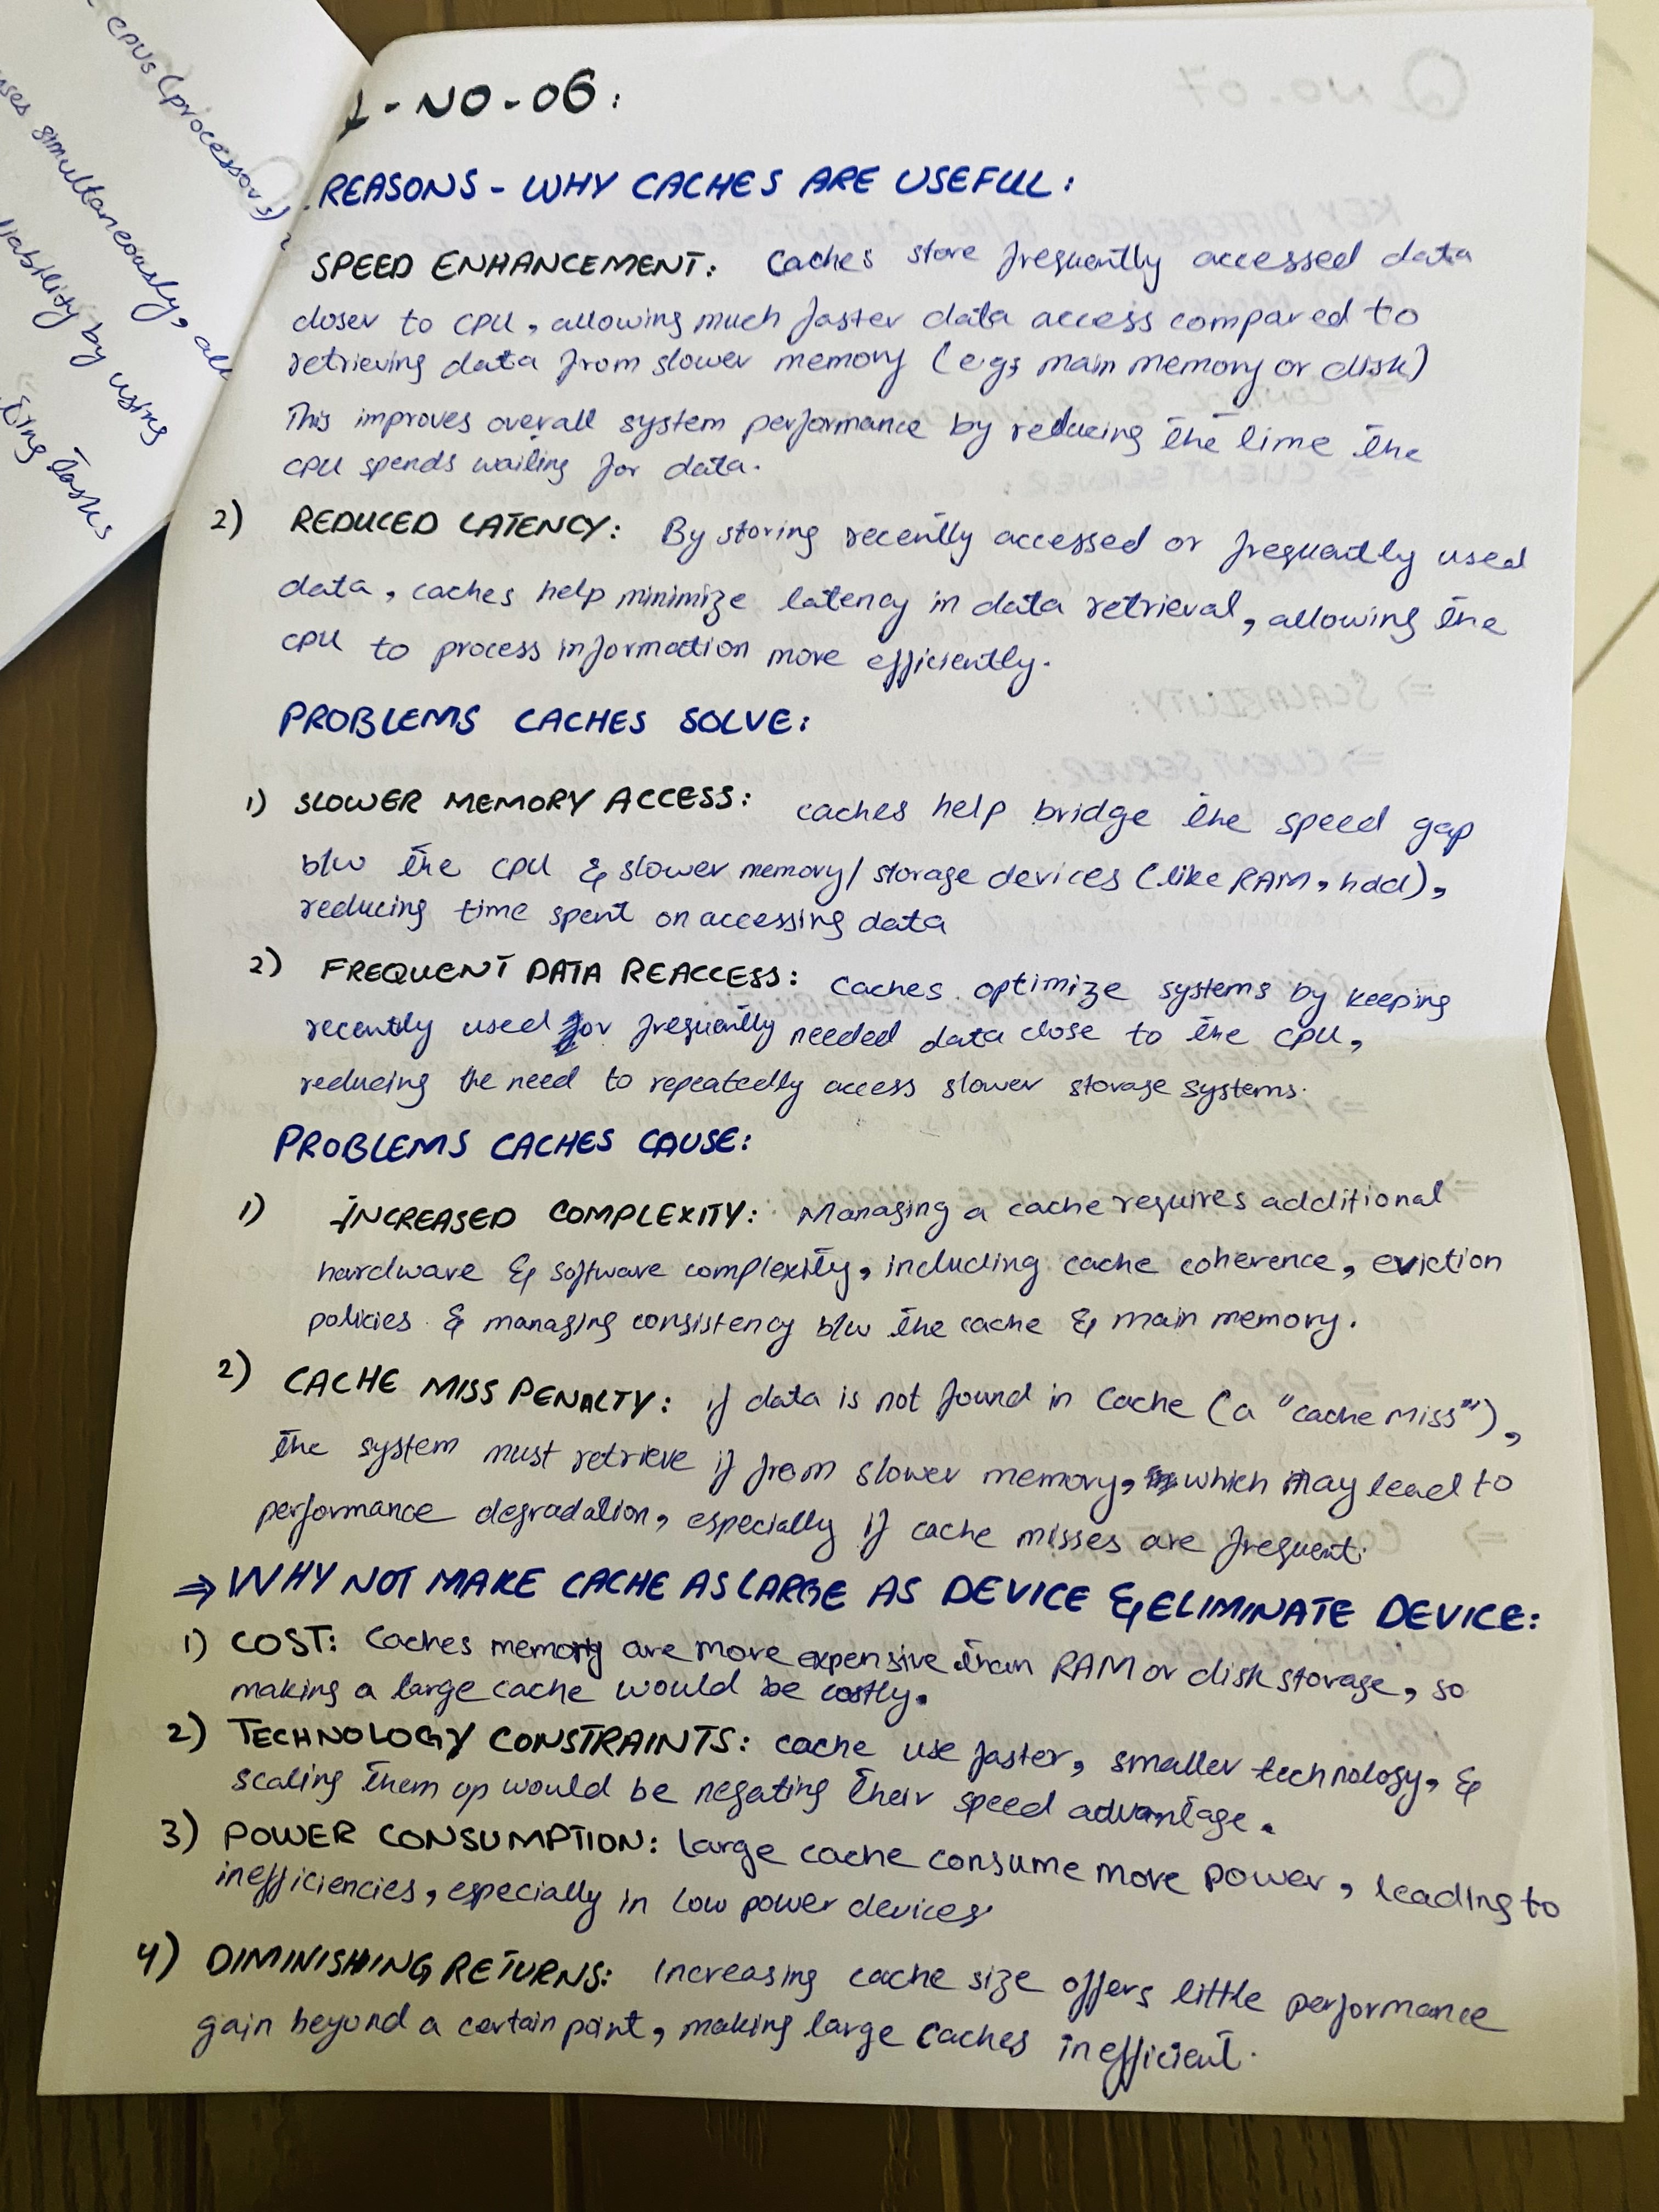 CPUs (processors)
ses simultaneously, all
liability by using
ting tasks
-NO-06:
REASONS - WHY CACHES ARE USEFUL:
SPEED ENHANCEMENT: Caches store frequently accessed data
closer to CPU, allowing much faster data access compared to
retrieving data from slower memory (e.g; main memory or disk)
This improves overall system performance by reducing the time the
CPU spends waiting for data.
2) REDUCED LATENCY: By storing recently accessed or frequently used
data, caches help minimize latency in data retrieval, allowing the
CPU to process information more efficiently.
PROBLEMS CACHES SOLVE:
1) SLOWER MEMORY ACCESS: caches help bridge the speed gap
b/w the CPU & slower memory/storage devices (like RAM, hdd),
reducing time spent on accessing data
2) FREQUENT DATA REACCESS: Caches optimize systems by keeping
recently used or frequently needed data close to the CPU,
reducing the need to repeatedly access slower storage systems.
PROBLEMS CACHES CAUSE:
1) INCREASED COMPLEXITY: Managing a cache requires additional
hardware & software complexity, including cache coherence, eviction
policies & managing consistency b/w the cache & main memory.
2) CACHE MISS PENALTY: if data is not found in Cache (a "cache miss"),
the system must retrieve if from slower memory, which may lead to
performance degradation, especially if cache misses are frequent.
⇒ WHY NOT MAKE CACHE AS LARGE AS DEVICE & ELIMINATE DEVICE:
1) COST: Caches memory are more expensive than RAM or disk storage, so
making a large cache would be costly.
2) TECHNOLOGY CONSTRAINTS: cache use faster, smaller technology, &
scaling them up would be negating their speed advantage.
3) POWER CONSUMPTION: Large cache consume more power, leading to
inefficiencies, especially in low power devices
4) DIMINISHING RETURNS: Increasing cache size offers little performance
gain beyond a certain point, making large caches inefficient.